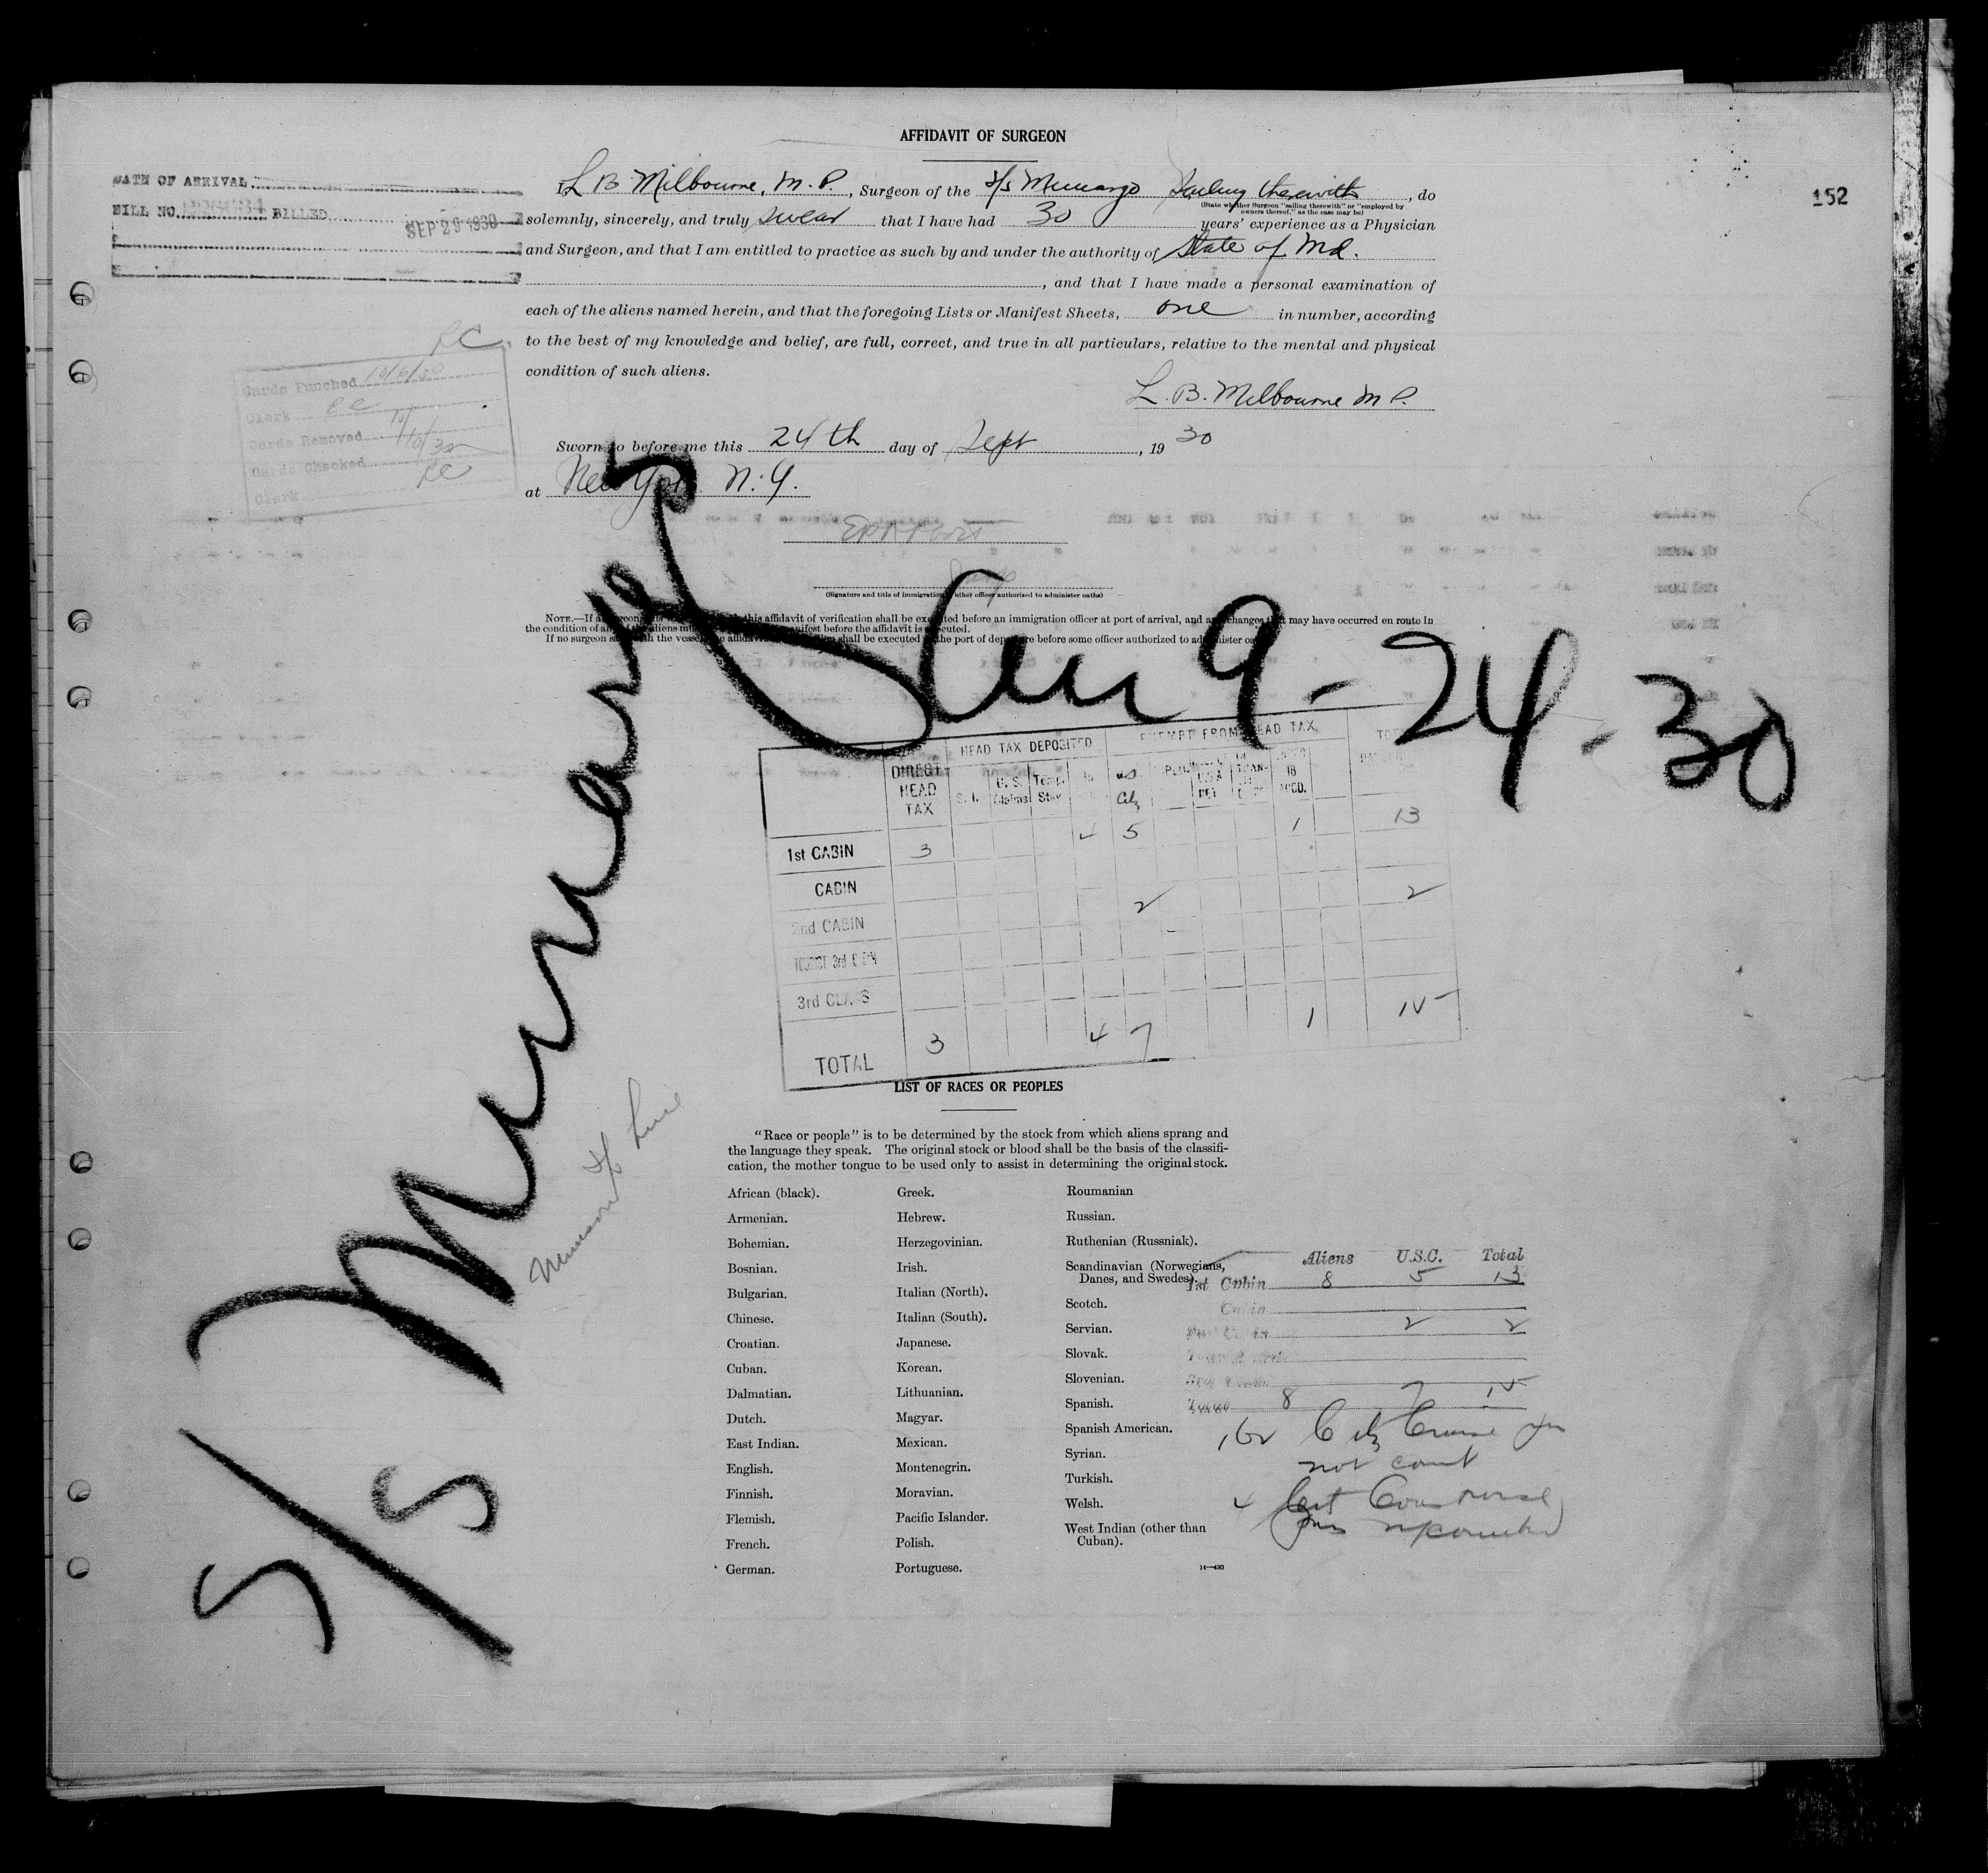 AFFIDAVIT OF SURGEON
152
DATE OF ARRIVAL
BILL NO. BILLED
SEP 29 1930
I, L B Milbourne, M. D., Surgeon of the S/S Munargo Sailing therewith, do
(State whether Surgeon "sailing therewith" or "employed by
owners thereof," as the case may be)
solemnly, sincerely, and truly swear that I have had 30 years' experience as a Physician
and Surgeon, and that I am entitled to practice as such by and under the authority of State of Md.
, and that I have made a personal examination of
each of the aliens named herein, and that the foregoing Lists or Manifest Sheets, one in number, according
to the best of my knowledge and belief, are full, correct, and true in all particulars, relative to the mental and physical
condition of such aliens.
L. B. Milbourne M D.
Sworn to before me this 24th day of Sept, 1930
at New York N.Y.
(Signature and title of immigration or other officer authorized to administer oaths)
RC
Cards Punched 10/6/30
Clerk
Cards Removed
Cards Checked 10/10/30
Clerk RC
NOTE.—If a surgeon this affidavit of verification shall be executed before an immigration officer at port of arrival, and any changes that may have occurred en route in
the condition of any of the aliens manifest before the affidavit is executed.
If no surgeon the vessel shall be executed the port of departure before some officer authorized to administer oaths
S/S Munargo
9-24-30
Munson Line
DIRECT HEAD TAX
HEAD TAX DEPOSITED
EXEMPT FROM HEAD TAX
S. I.
U. S. Claims
Temp. Stay
US Citz
1st CABIN 3 4 5 1 13
CABIN
2nd CABIN 2 2
TOURIST 3rd CABIN
3rd CLASS
TOTAL 3 4 7 1 15
LIST OF RACES OR PEOPLES
"Race or people" is to be determined by the stock from which aliens sprang and
the language they speak. The original stock or blood shall be the basis of the classifi-
cation, the mother tongue to be used only to assist in determining the original stock.
African (black).
Armenian.
Bohemian.
Bosnian.
Bulgarian.
Chinese.
Croatian.
Cuban.
Dalmatian.
Dutch.
East Indian.
English.
Finnish.
Flemish.
French.
German.
Greek.
Hebrew.
Herzegovinian.
Irish.
Italian (North).
Italian (South).
Japanese.
Korean.
Lithuanian.
Magyar.
Mexican.
Montenegrin.
Moravian.
Pacific Islander.
Polish.
Portuguese.
Roumanian
Russian.
Ruthenian (Russniak).
Scandinavian (Norwegians,
Danes, and Swedes).
Scotch.
Servian.
Slovak.
Slovenian.
Spanish.
Spanish American.
Syrian.
Turkish.
Welsh.
West Indian (other than
Cuban).
14—430
Aliens U.S.C. Total
1st Cabin 8 5 13
Cabin
2 2
8 7 15
Citz Cruise
not count